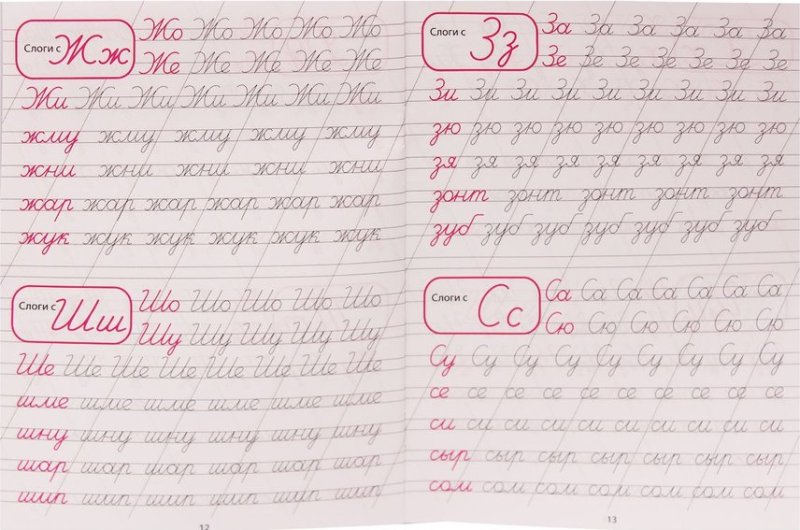 Слоги с Жж
Жо Жо Жо Жо Жо
Же Же Же Же Же
Жи Жи Жи Жи Жи Жи Жи
жму жму жму жму жму
жни жни жни жни жни
жар жар жар жар жар жар
жук жук жук жук жук жук
Слоги с Шш
Шо Шо Шо Шо Шо
Шу Шу Шу Шу Шу
Ше Ше Ше Ше Ше Ше Ше Ше
шме шме шме шме шме шме
шну шну шну шну шну шну
шар шар шар шар шар шар
шип шип шип шип шип шип
12
Слоги с Зз
За За За За За За
Зе Зе Зе Зе Зе Зе Зе
Зи Зи Зи Зи Зи Зи Зи Зи Зи
зю зю зю зю зю зю зю зю зю
зя зя зя зя зя зя зя зя зя
зонт зонт зонт зонт зонт
зуб зуб зуб зуб зуб зуб зуб
Слоги с Сс
Са Са Са Са Са Са Са
Сю Сю Сю Сю Сю Сю
Су Су Су Су Су Су Су Су Су
се се се се се се се се се
си си си си си си си си си
сыр сыр сыр сыр сыр сыр сыр
сом сом сом сом сом сом сом
13